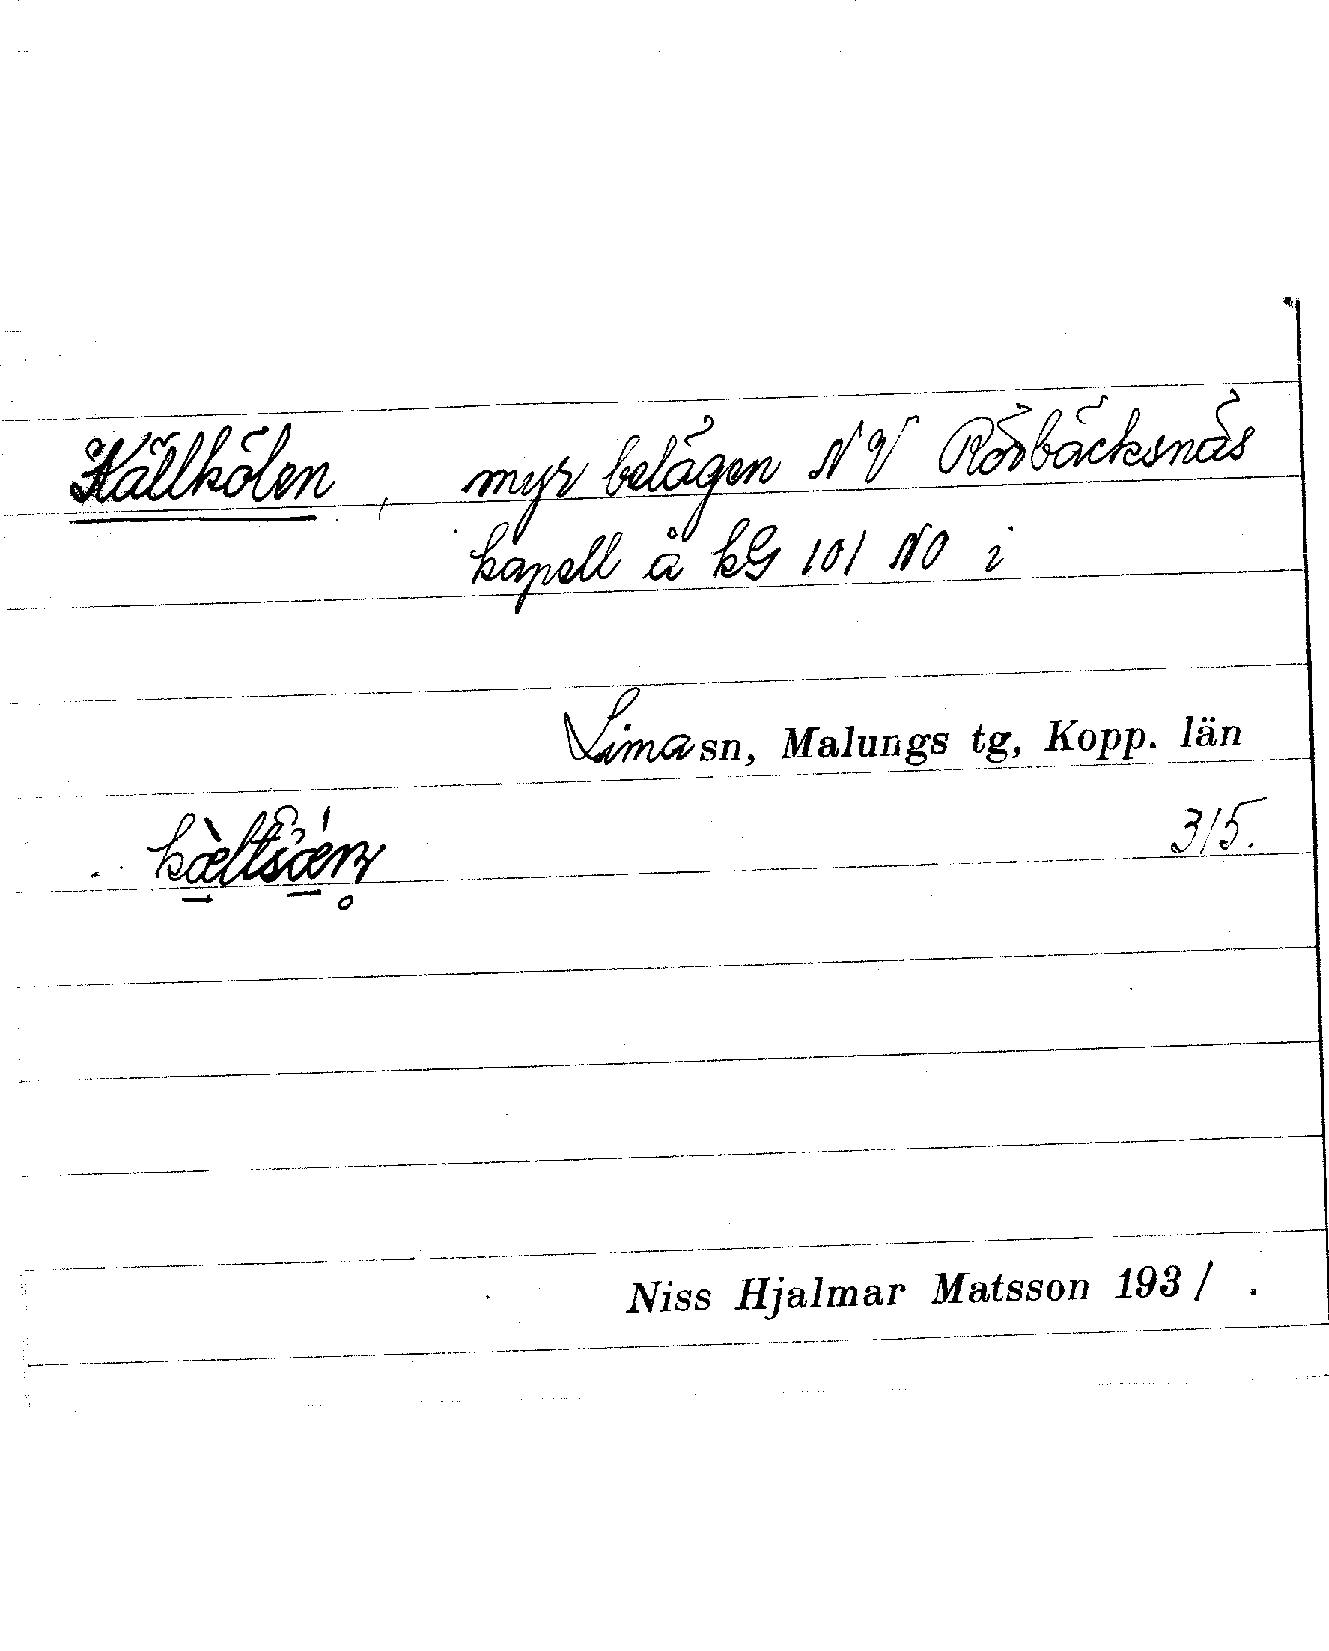 Källkölen, myr belägen NV Rörbäcksnäs
kapell å kG 101 NO i
Lima sn, Malungs tg, Kopp. län
315.
Niss Hjalmar Matsson 1931.